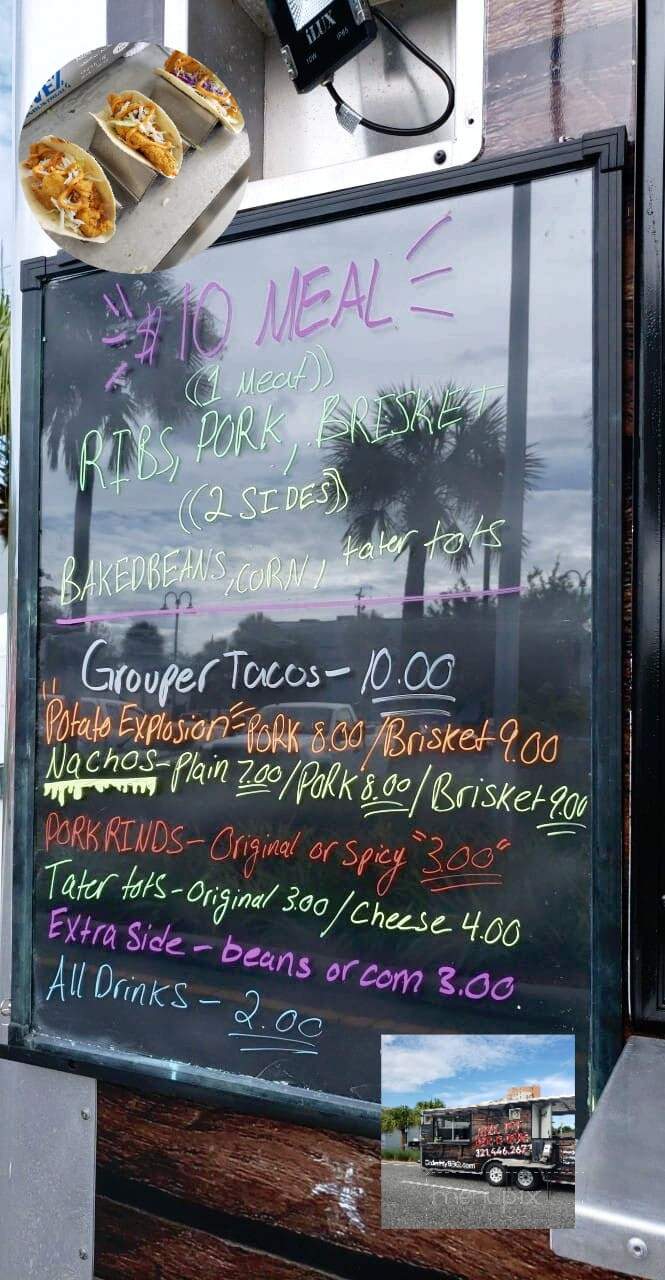 iLUX
10W IP65
$10 MEAL
(1 Meat))
RIBS, PORK, BRISKET
((2 SIDES))
BAKEDBEANS, CORN, tater tots
Grouper Tacos - 10.00
"Potato Explosion" = PORK 8.00 / Brisket 9.00
Nachos - Plain 7.00 / PORK 8.00 / Brisket 9.00
PORK RINDS - Original or Spicy "3.00"
Tater tots - Original 3.00 / Cheese 4.00
Extra Side - beans or corn 3.00
All Drinks - 2.00
321.446.2673
OrderMyBBQ.com
menupix